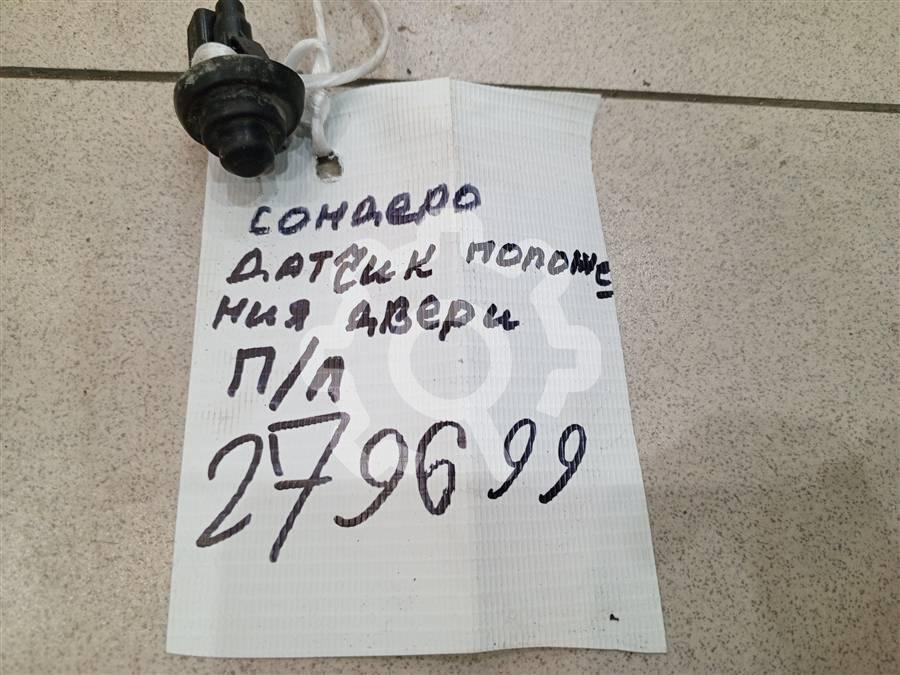 сондеро
датчик положе
ния двери
п/л
2796 99